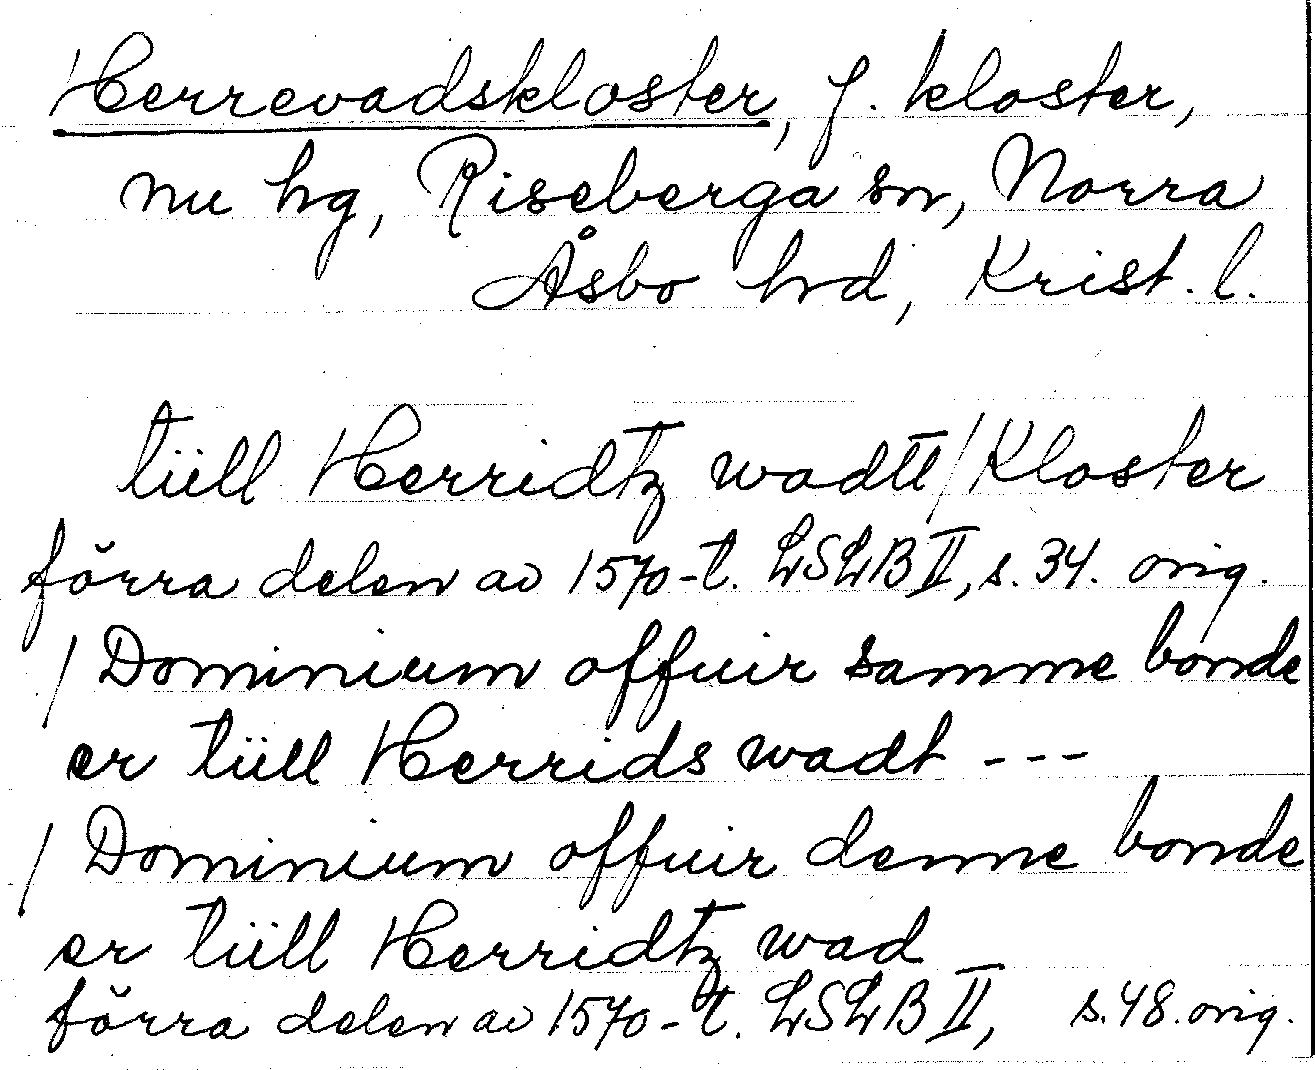 Herrevadskloster, f. kloster,
nu hg, Riseberga sn, Norra
Åsbo hd, Krist. l.
tüll Herridtz wadtt/Kloster
förra delen av 1570-t. LSLB II, s. 34. orig.
/ Dominium offuir samme bonde
er tüll Herrids wadt ---
/ Dominium offuir denne bonde
er tüll Herridtz wad
förra delen av 1570-t. LSLB II, s. 48. orig.